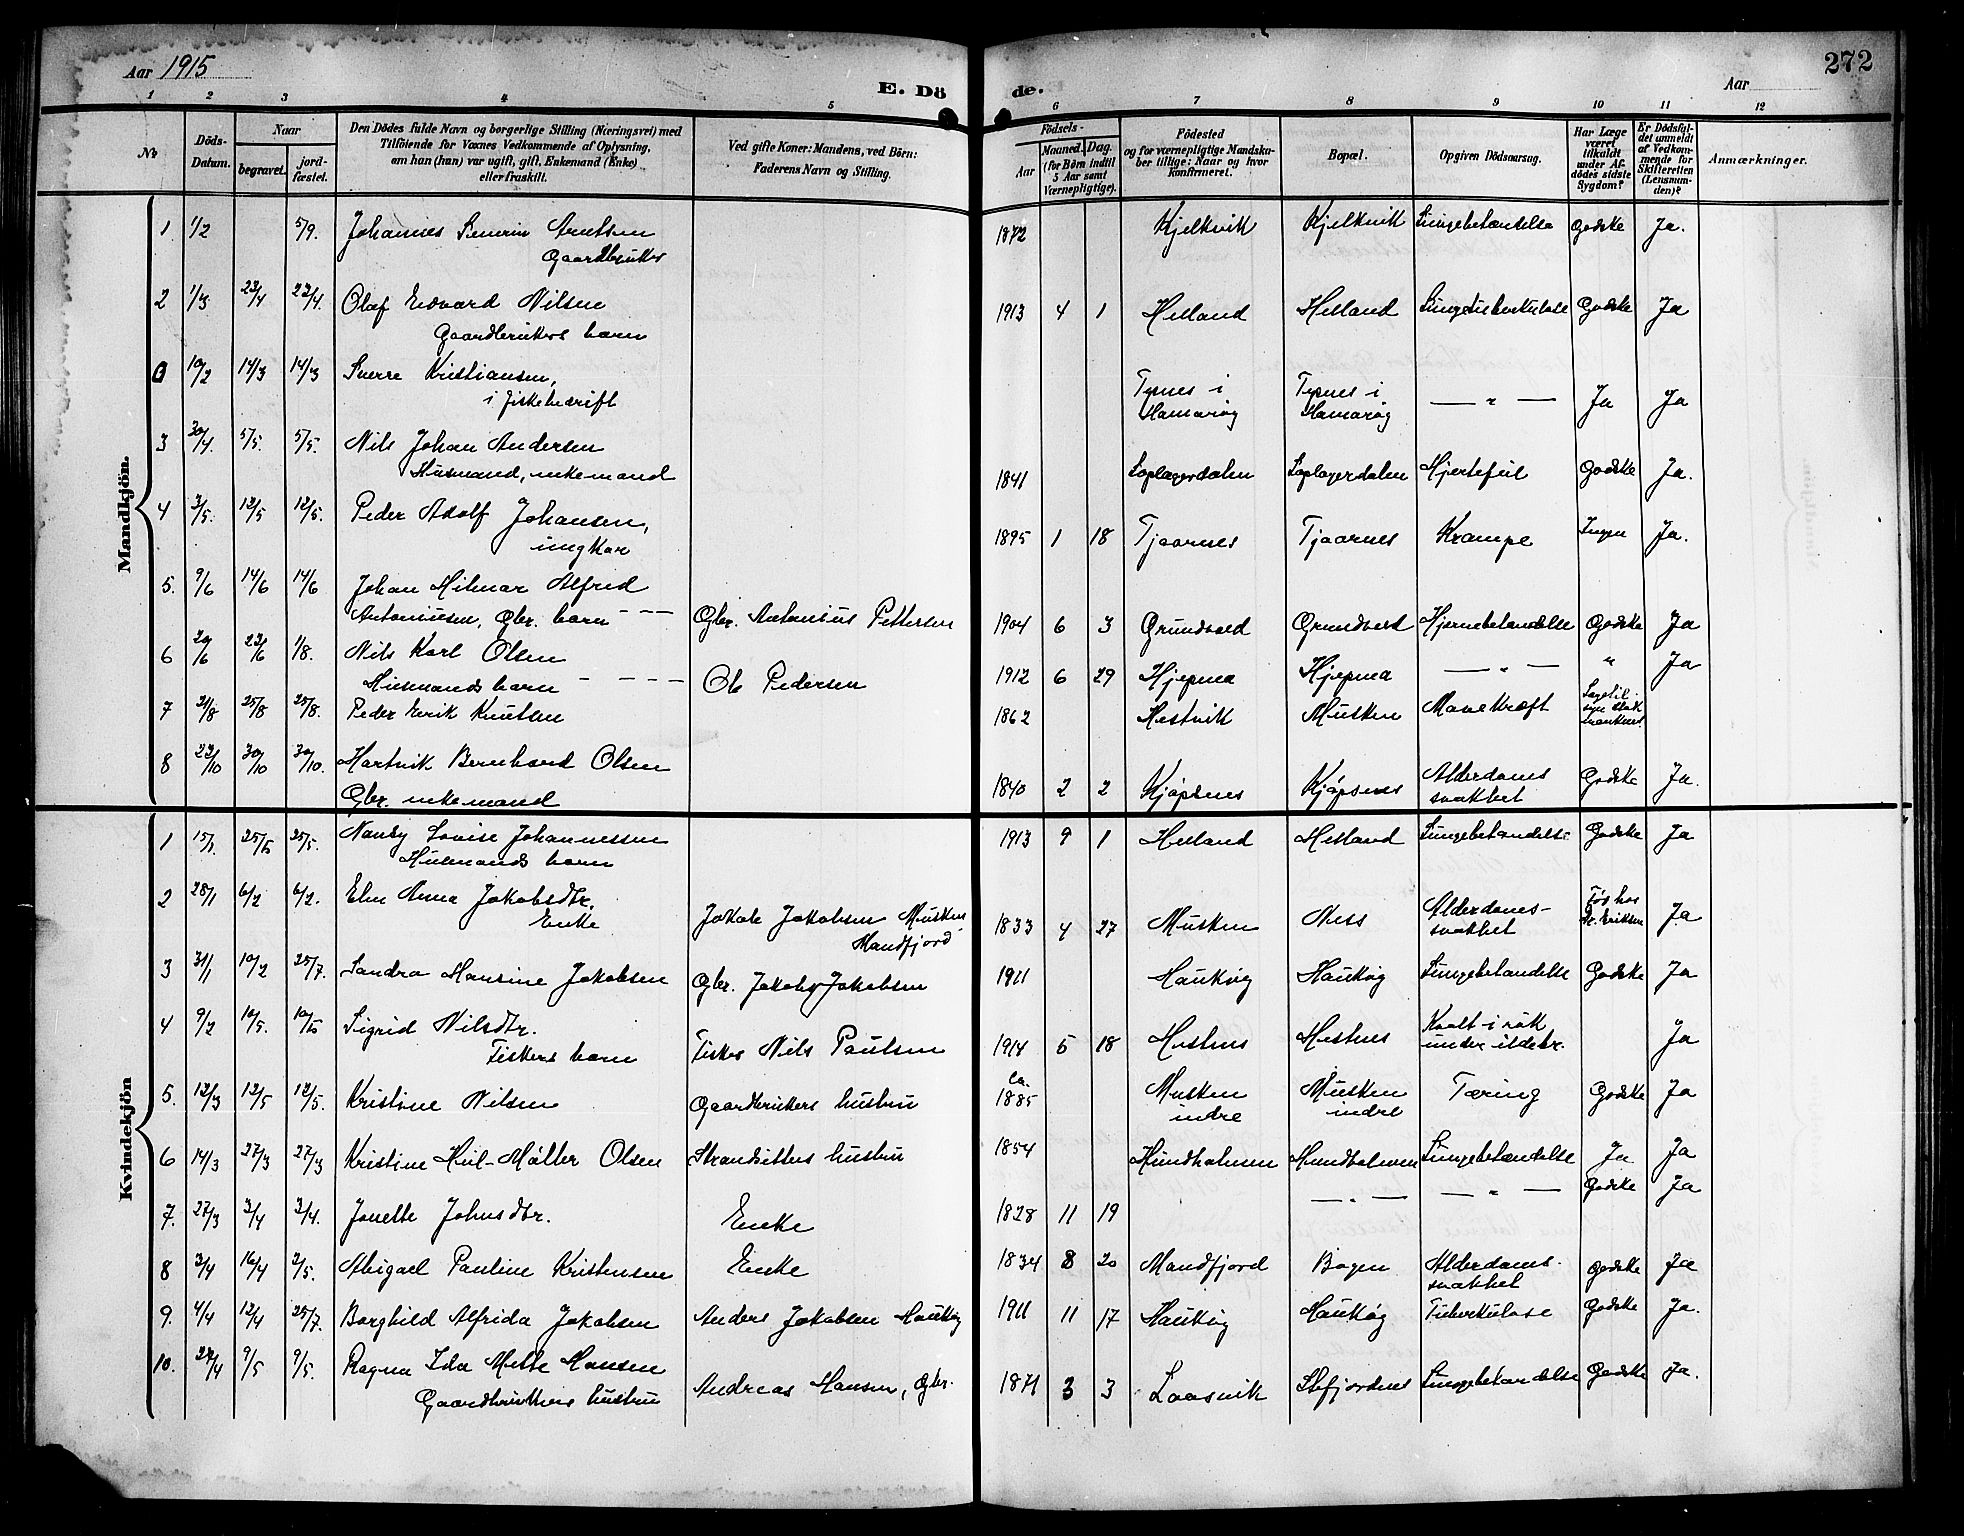 Aar 1915
E. Dö
de.
Aar
272
1 2 3 4 5 6 7 8 9 10 11 12
No
Döds-Datum.
Naar
begravet.
jord-fæstet.
Den Dödes fulde Navn og borgerlige Stilling (Næringsvei) med
Tilföiende for Voxnes Vedkommende af Oplysning,
om han (hun) var ugift, gift, Enkemand (Enke)
eller fraskilt.
Ved gifte Koner: Mandens, ved Börn:
Faderens Navn og Stilling.
Födsels-
Aar
Maaned. Dag.
(for Börn indtil
5 Aar samt
Værnepligtige).
Födested
og for værnepligtige Mandska-
ber tillige: Naar og hvor
konfirmeret.
Bopæl.
Opgiven Dödsaarsag.
Har Læge
været
tilkaldt
under Af-
dödes sidste
Sygdom?
Er Dödsfal-
det anmeldt
af Vedkom-
mende for
Skifteretten
(Lensman-
den)?
Anmærkninger.
Mandkjön.
1. 1/2 5/9. Johannes Severin Arntsen 1872 Kjelkvik Kjelkvik Lungebetændelse Godske Ja.
Gaardbruker
2 1/3 23/4 23/4. Olaf Edvard Nilsen 1913 4 1 Helland Helland Lungetuberkulose Godske Ja
Gaardbrukers barn
0 10/2 14/3 14/3 Sverre Kristiansen, Ja Ja
i fiskebedrift
Tyrnes i Hamarøy
Tyrnes i Hamarøy
— " —
3 30/4. 5/5. 5/5. Nils Johan Andersen
Husmand, enkemand 1841 Hjertefeil Godske Ja.
4 3/5. 12/5 12/5. Peder Adolf Johansen, 1895 1 18 Tjaarnes Tjaarnes Krampe Ingen Ja.
ungkar
5. 9/6 14/6 14/6 Johan Hilmar Alfred
Antoniusen, Gbr. barn - - - Gbr. Antonius Pettersen 1904 6 3 Grundvold Hjernebetændelse Godske Ja
6 20/6 23/6 1/8. Nils Karl Olsen
Husmands barn - - - - Ole Pedersen 1912 6 29 Hjepma Hjepma — " — " Ja
7 21/8 25/8 25/8. Peder Erik Knutsen 1862 Hestvik Musken Mavekræft
8 23/10 30/10 30/10. Hartvik Bernhard Olsen
Gbr. enkemand 1840 2 2 Kjøpsnes Kjøpsnes Alderdoms
svakhet Godske Ja.
Kvindekjön
1 15/1. 25/5 25/5. Nancy Lovise Johannessen 1913 9 1 Helland Helland Lungebetændelse Godske Ja
Husmands barn
2 28/1 6/2 6/2. Elen Anna Jakobsdtr.
Enke
Jakob Jakobsen Musken
Mandfjord
1833 4 27 Musken Ness Alderdoms-
svakhet Dr. Eriksen Ja
3 31/1 10/2 25/7. Sandra Hansine Jakobsen Gbr. Jakob Jakobsen 1911 Haukøy Haukøy Lungebetændelse Godske Ja
4 9/2 10/5. 10/5 Sigrid Nilsdtr.
Fiskers barn Fisker Nils Paulsen 1914 5 18 Hestnes Hestnes Kvalt i røk
under ildebr. Ja
5. 12/3 12/5 12/5. Kristine Nilsen Gaardbrukers hustru ca. 1885 Musken
indre Musken
indre Tæring Godske Ja
6 14/3 27/3 27/3 Kristine Hul-Møller Olsen Strandsitters hustru 1854 Hundholmen Hundholmen Lungebetændelse Ja Ja
7. 27/3 3/4 3/4. Jonette Johnsdtr. Enke 1828 11 19 — " — — " — Godske Ja
8 3/4 16/4 2/5. Abigael Pauline Kristensen Enke 1834 8 20 Mandfjord Bogen Alderdoms-
svakhet Godske Ja
9. 4/4 12/4 25/7. Borghild Alfrida Jakobsen Anders Jakobsen Haukøy 1911 11 17 Haukøy Haukøy Tuberkulose Godske Ja.
10. 27/4 9/5 9/5. Ragna Ida Mette Hansen
Gaardbrukers hustru Andreas Hansen, Gbr. 1871 3 3 Laasvik Stefjordnes Lungebetændelse Godske Ja.